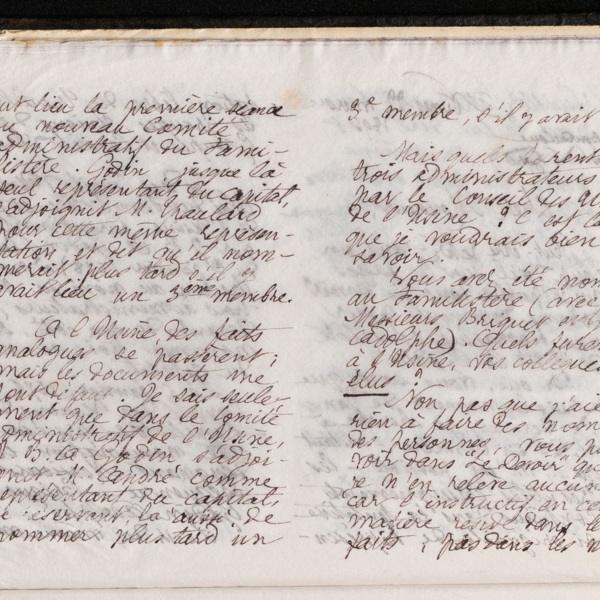 eut lieu la première séance
du nouveau Comité
administratif du Fami-
listère. Godin, jusque là
seul représentant du capital,
s'adjoignit M.
pour cette même représen-
tation et dit qu'il nom-
merait plus tard s'il y
avait lieu un 3ème membre.
À l'Usine des faits
analogues se passèrent;
mais les documents me
font défaut. Je sais seule-
ment que dans le Comité
administratif de l'Usine,
J. Bte Godin s'adjoi-
gnit M. André comme
représentant du capital,
se réservant là aussi de
nommer plus tard un
3e membre, s'il y avait
Mais quels
trois administrateurs
par le Conseil des
de l'Usine ? C'est
que je voudrais bien
savoir.
Vous avez été nom
au Familistère (avec
Messieurs Briquet
Adolphe). Quels
à l'Usine, vos collègues
élus ?
Non pas que j'aie
rien à faire des nom
des personnes, vous
voir dans "Le Devoir" que
je n'en relève aucun
car l'instructif en ce
matière réside dans le
faits, pas dans les n